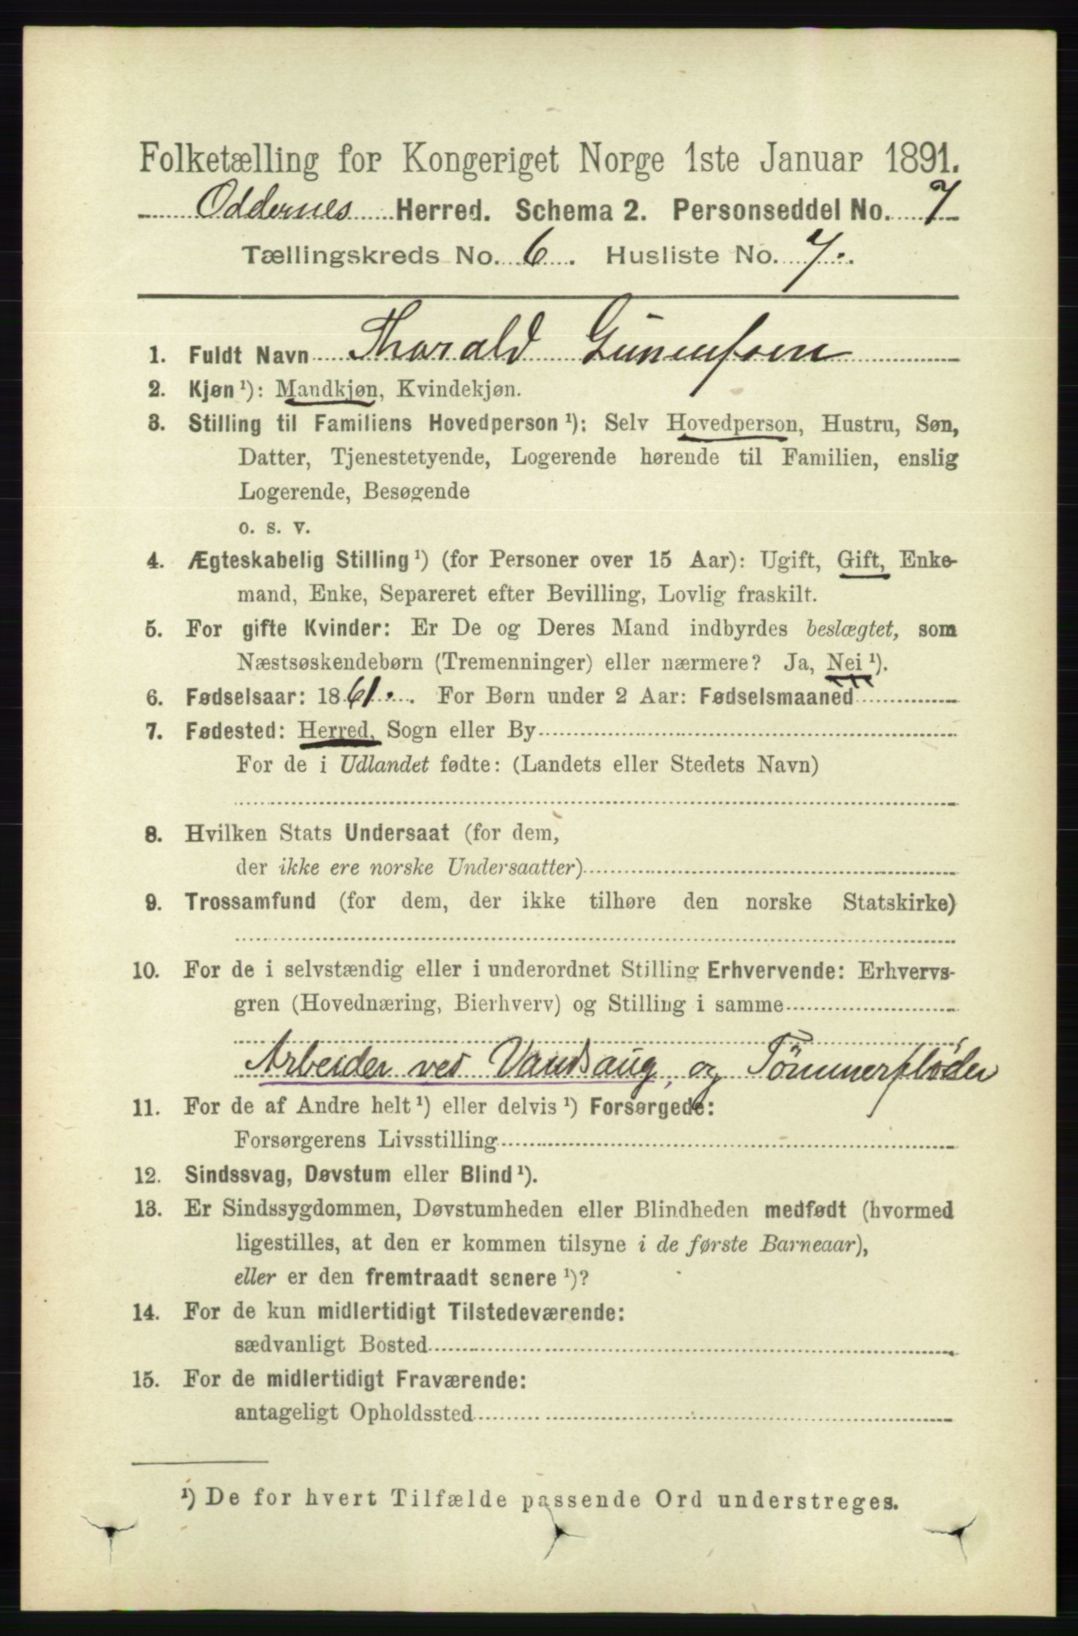 Folketælling for Kongeriget Norge 1ste Januar 1891.
Oddernes Herred. Schema 2. Personseddel No. 7
Tællingskreds No. 6. Husliste No. 7.
1. Fuldt Navn Tharald Gunnufsen
2. Kjøn¹): Mandkjøn, Kvindekjøn.
3. Stilling til Familiens Hovedperson¹): Selv Hovedperson, Hustru, Søn,
Datter, Tjenestetyende, Logerende hørende til Familien, enslig
Logerende, Besøgende
o. s. v.
4. Ægteskabelig Stilling¹) (for Personer over 15 Aar): Ugift, Gift, Enke-
mand, Enke, Separeret efter Bevilling, Lovlig fraskilt.
5. For gifte Kvinder: Er De og Deres Mand indbyrdes beslægtet, som
Næstsøskendebørn (Tremenninger) eller nærmere? Ja, Nei¹).
6. Fødselsaar: 1861. For Børn under 2 Aar: Fødselsmaaned
7. Fødested: Herred, Sogn eller By
For de i Udlandet fødte: (Landets eller Stedets Navn)
8. Hvilken Stats Undersaat (for dem,
der ikke ere norske Undersaatter)
9. Trossamfund (for dem, der ikke tilhøre den norske Statskirke)
10. For de i selvstændig eller i underordnet Stilling Erhvervende: Erhvervs-
gren (Hovednæring, Bierhverv) og Stilling i samme
Arbeider ved Vandsaug, og Tömmerflöder
11. For de af Andre helt¹) eller delvis¹) Forsørgede:
Forsørgerens Livsstilling
12. Sindssvag, Døvstum eller Blind¹).
13. Er Sindssygdommen, Døvstumheden eller Blindheden medfødt (hvormed
ligestilles, at den er kommen tilsyne i de første Barneaar),
eller er den fremtraadt senere¹)?
14. For de kun midlertidigt Tilstedeværende:
sædvanligt Bosted
15. For de midlertidigt Fraværende:
antageligt Opholdssted
¹) De for hvert Tilfælde passende Ord understreges.